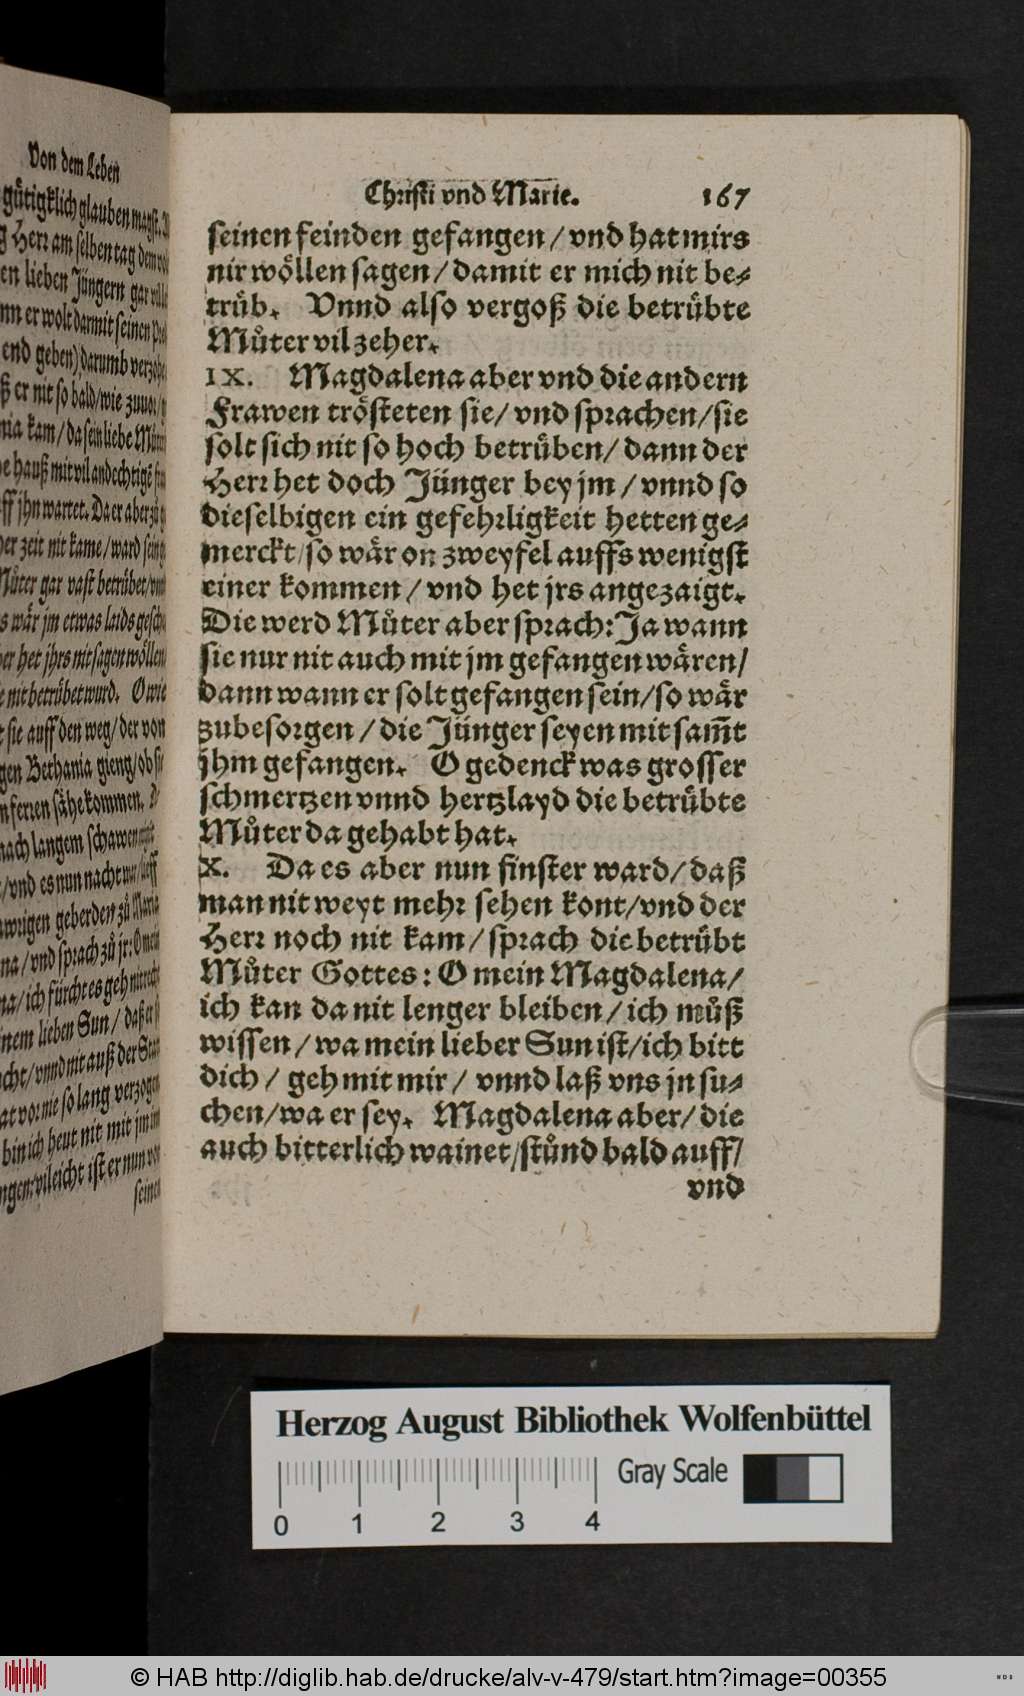 Von dem Leben
gütigklich glauben magst.
Herr am selben tag dem
en lieben Jüngern gar
nn er wolt darmit seinen
end geben) darumb verzohe
er nit so bald/wie zuuor/
nia kam/da sein liebe Můter
hauß mit vil andechtigē
jhn wartet. Da er aber zů
zeit nit kame/ward sein
Můter gar vast betrübet/
wär jm etwas laids gesche
het jhrs nit sagen wöllen
nit betrübet wurd. O wie
sie auff den weg/der von
gen Bethania gieng/ob sie
ferren sähe kommen.
nach langem schawen
/vnd es nun nacht war/
awrigen geberden zů Maria
na/vnd sprach zů jr: O mein
na/ich fürcht es geh nit recht
nem lieben Sun/daß er
cht/vnnd nit auß der Stat
at vor nie so lang verzogen
bin ich heut nit mit jm
ngen: vileicht ist er nun von
seinen
Christi vnd Marie. 167
seinen feinden gefangen/vnd hat mirs
nir wöllen sagen/damit er mich nit be-
trüb. Vnnd also vergoß die betrübte
Můter vil zeher.
IX. Magdalena aber vnd die andern
Frawen trösteten sie/vnd sprachen/sie
solt sich nit so hoch betrüben/dann der
Herr het doch Jünger bey jm/vnnd so
dieselbigen ein gefehrligkeit hetten ge-
merckt/so wär on zweyfel auffs wenigst
einer kommen/vnd het jrs angezaigt.
Die werd Můter aber sprach: Ja wann
sie nur nit auch mit jm gefangen wären/
dann wann er solt gefangen sein/so wär
zubesorgen/die Jünger seyen mit sam̃t
jhm gefangen. O gedenck was grosser
schmertzen vnnd hertzlayd die betrübte
Můter da gehabt hat.
X. Da es aber nun finster ward/daß
man nit weyt mehr sehen kont/vnd der
Herr noch nit kam/sprach die betrübt
Můter Gottes: O mein Magdalena/
ich kan da nit lenger bleiben/ich můß
wissen/wa mein lieber Sun ist/ich bitt
dich/geh mit mir/vnnd laß vns jn su-
chen/wa er sey. Magdalena aber/die
auch bitterlich wainet/stůnd bald auff/
vnd
Herzog August Bibliothek Wolfenbüttel
Gray Scale
0 1 2 3 4
© HAB http://diglib.hab.de/drucke/alv-v-479/start.htm?image=00355